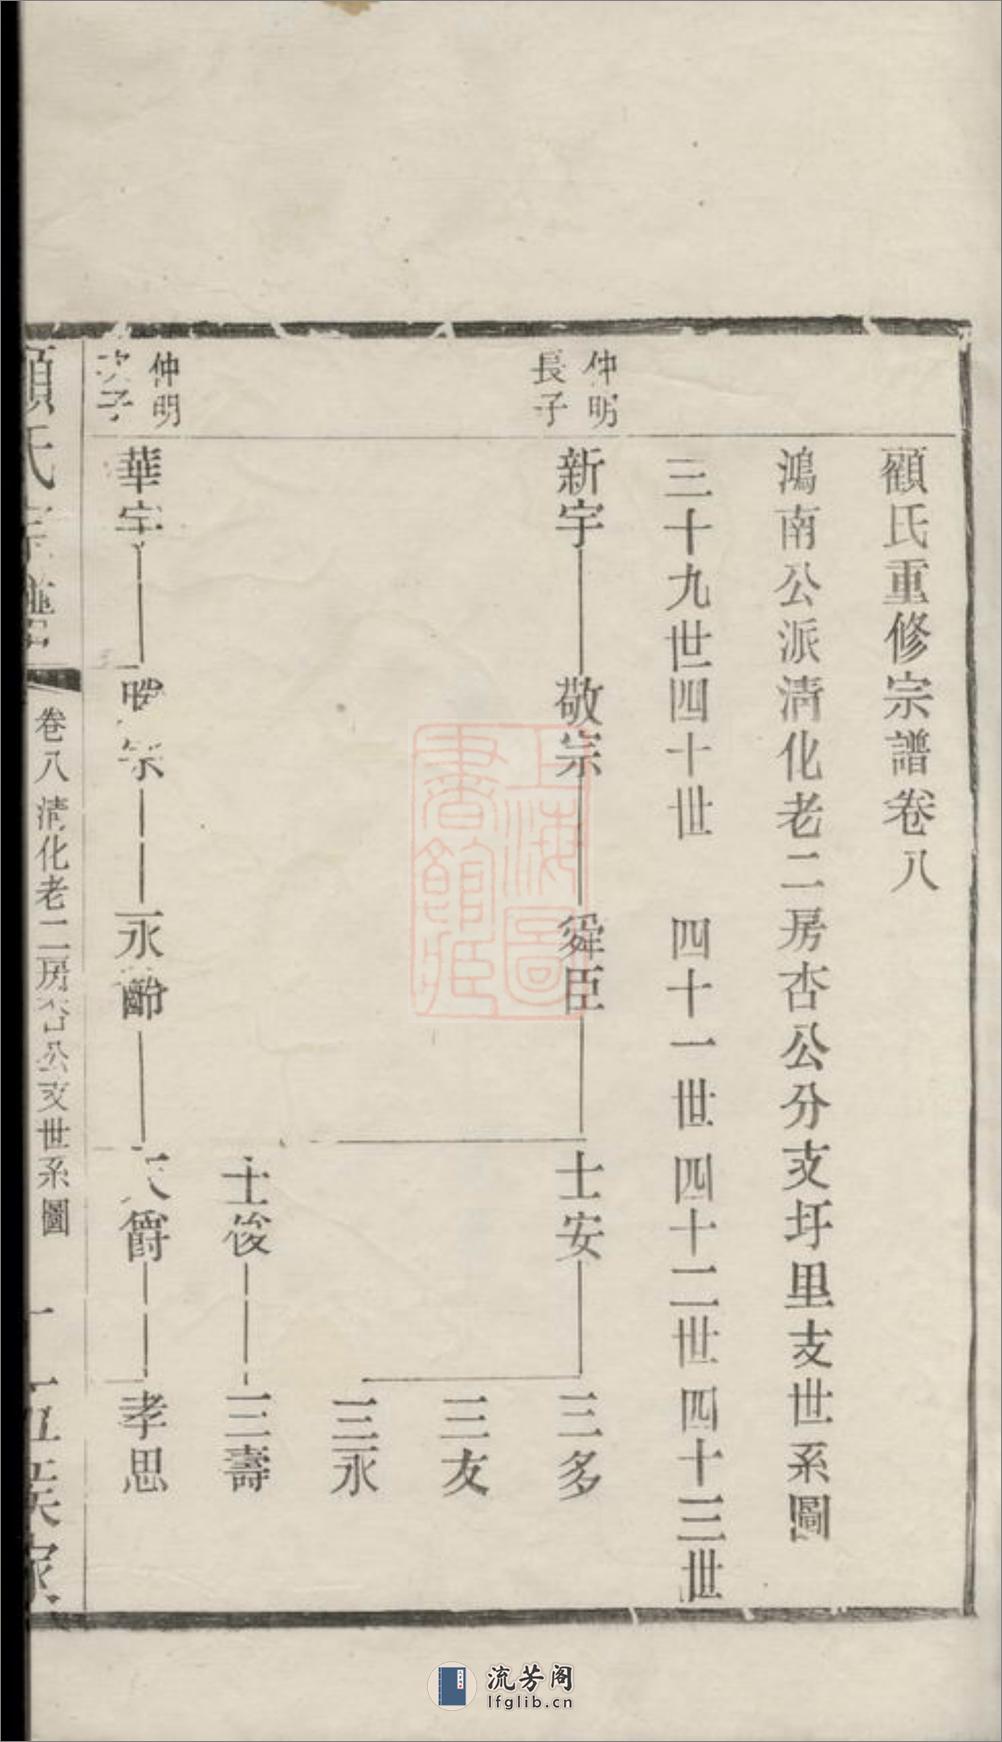 顧氏重修宗譜卷八
鴻南公派淸化老二房杏公分支圩里支世系圖
三十九世 四十世 四十一世 四十二世 四十三世
仲明
長子
新宇 敬宗 舜臣 士安 三多
三友
三永
士俊 三壽
仲明
次子
華宇 宗 永齡 天爵 孝思
顧氏宗譜 卷八 淸化老二房杏公支世系圖 一
上海圖
書館藏
流芳阁
lfglib.cn